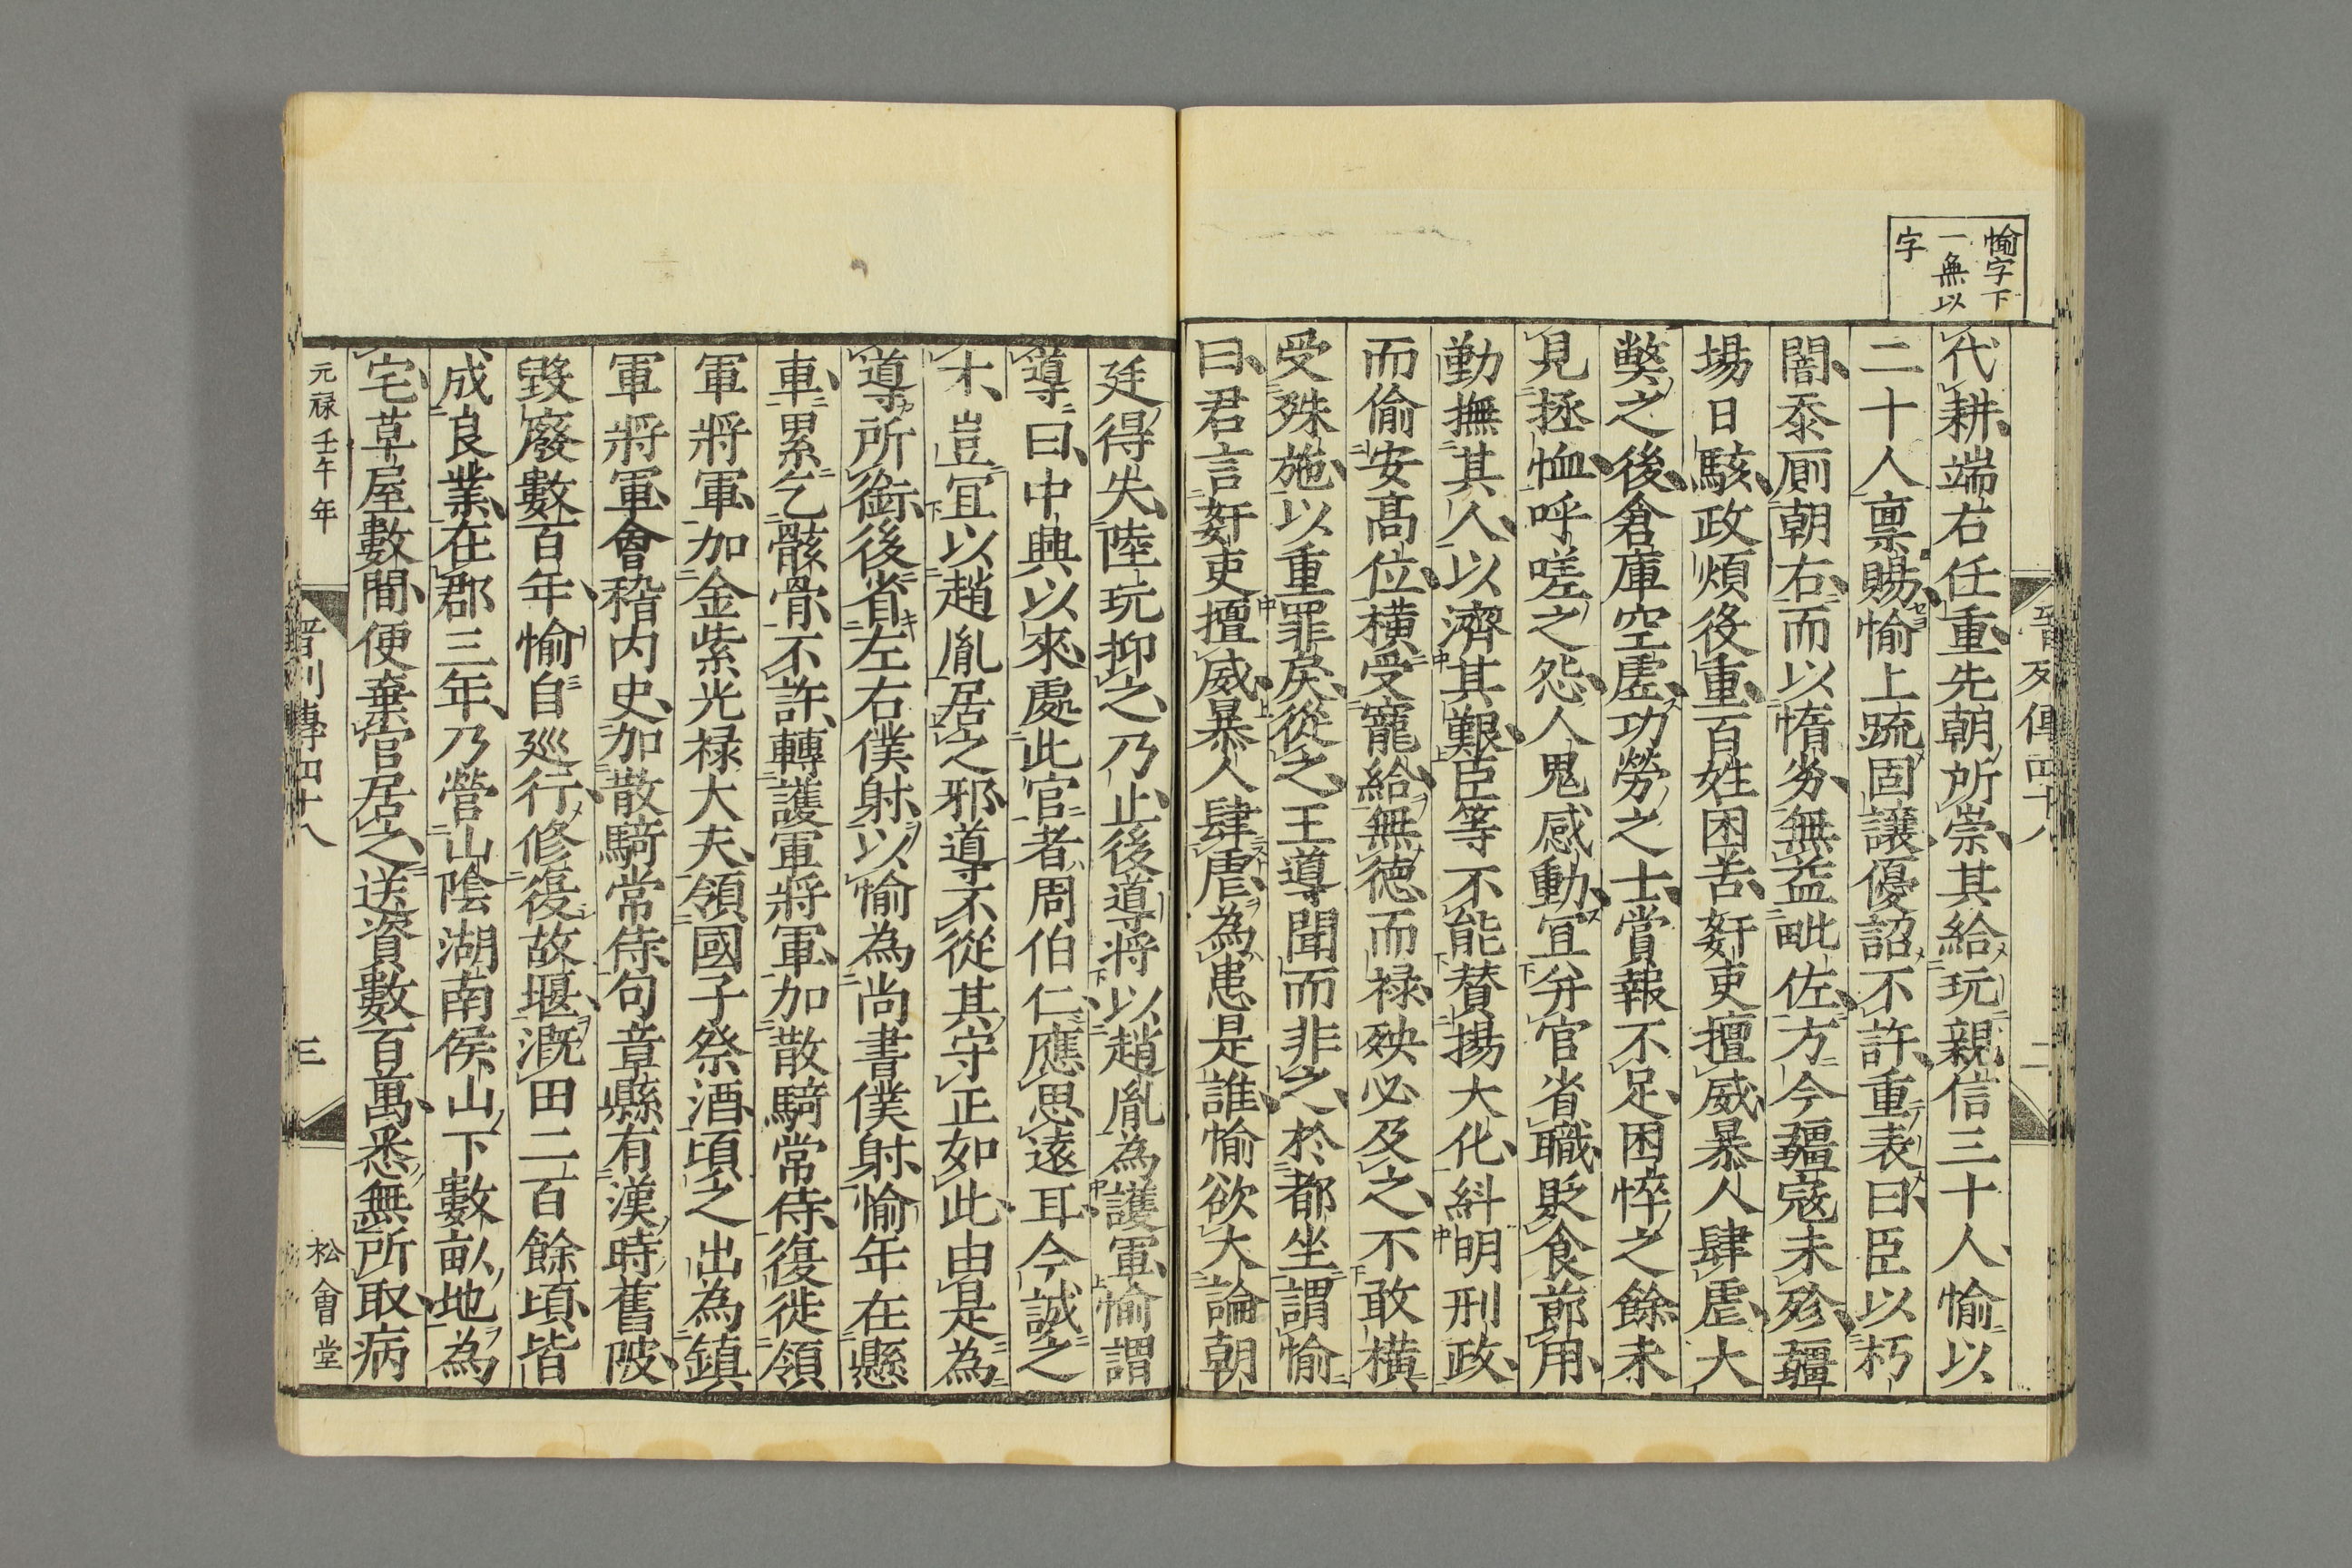 愉字下
一無以
字
晉列傳四十八
二
代耕端右任重先朝所崇其給玩親信三十人愉以
二十人禀賜愉上疏固讓優詔不許重表曰臣以朽
闇忝厠朝右而以惰劣無益毗佐方今疆寇未殄疆
場日駭政煩役重百姓困苦姧吏擅威暴人肆虐大
獘之後倉庫空虚功勞之士賞報不足困悴之餘未
見拯恤呼嗟之怨人鬼感動冝并官省職貶食節用
勤撫其人以濟其艱臣等不能賛揚大化糾明刑政
而偷安高位横受寵給無德而禄殃必及之不敢横
受殊施以重罪戾從之王導聞而非之於都坐謂愉
曰君言姧吏擅威暴人肆虐為患是誰愉欲大論朝
廷得失陸玩抑之乃止後導将以趙胤為護軍愉謂
導曰中興以來處此官者周伯仁應思遠耳今誠乏
才豈冝以趙胤居之邪導不從其守正如此由是為
導所銜後省左右僕射以愉為尚書僕射愉年在懸
車累乞骸骨不許轉護軍將軍加散騎常侍復徙領
軍將軍加金紫光禄大夫領國子祭酒頃之出為鎮
軍將軍會稽内史加散騎常侍句章縣有漢時舊陂
毀廢數百年愉自巡行修復故堰溉田二百餘頃皆
成良業在郡三年乃營山陰湖南侯山下數畝地為
宅草屋數間便棄官居之送資數百萬悉無所取病
元禄壬午年
晉列傳四十八
三
松會堂